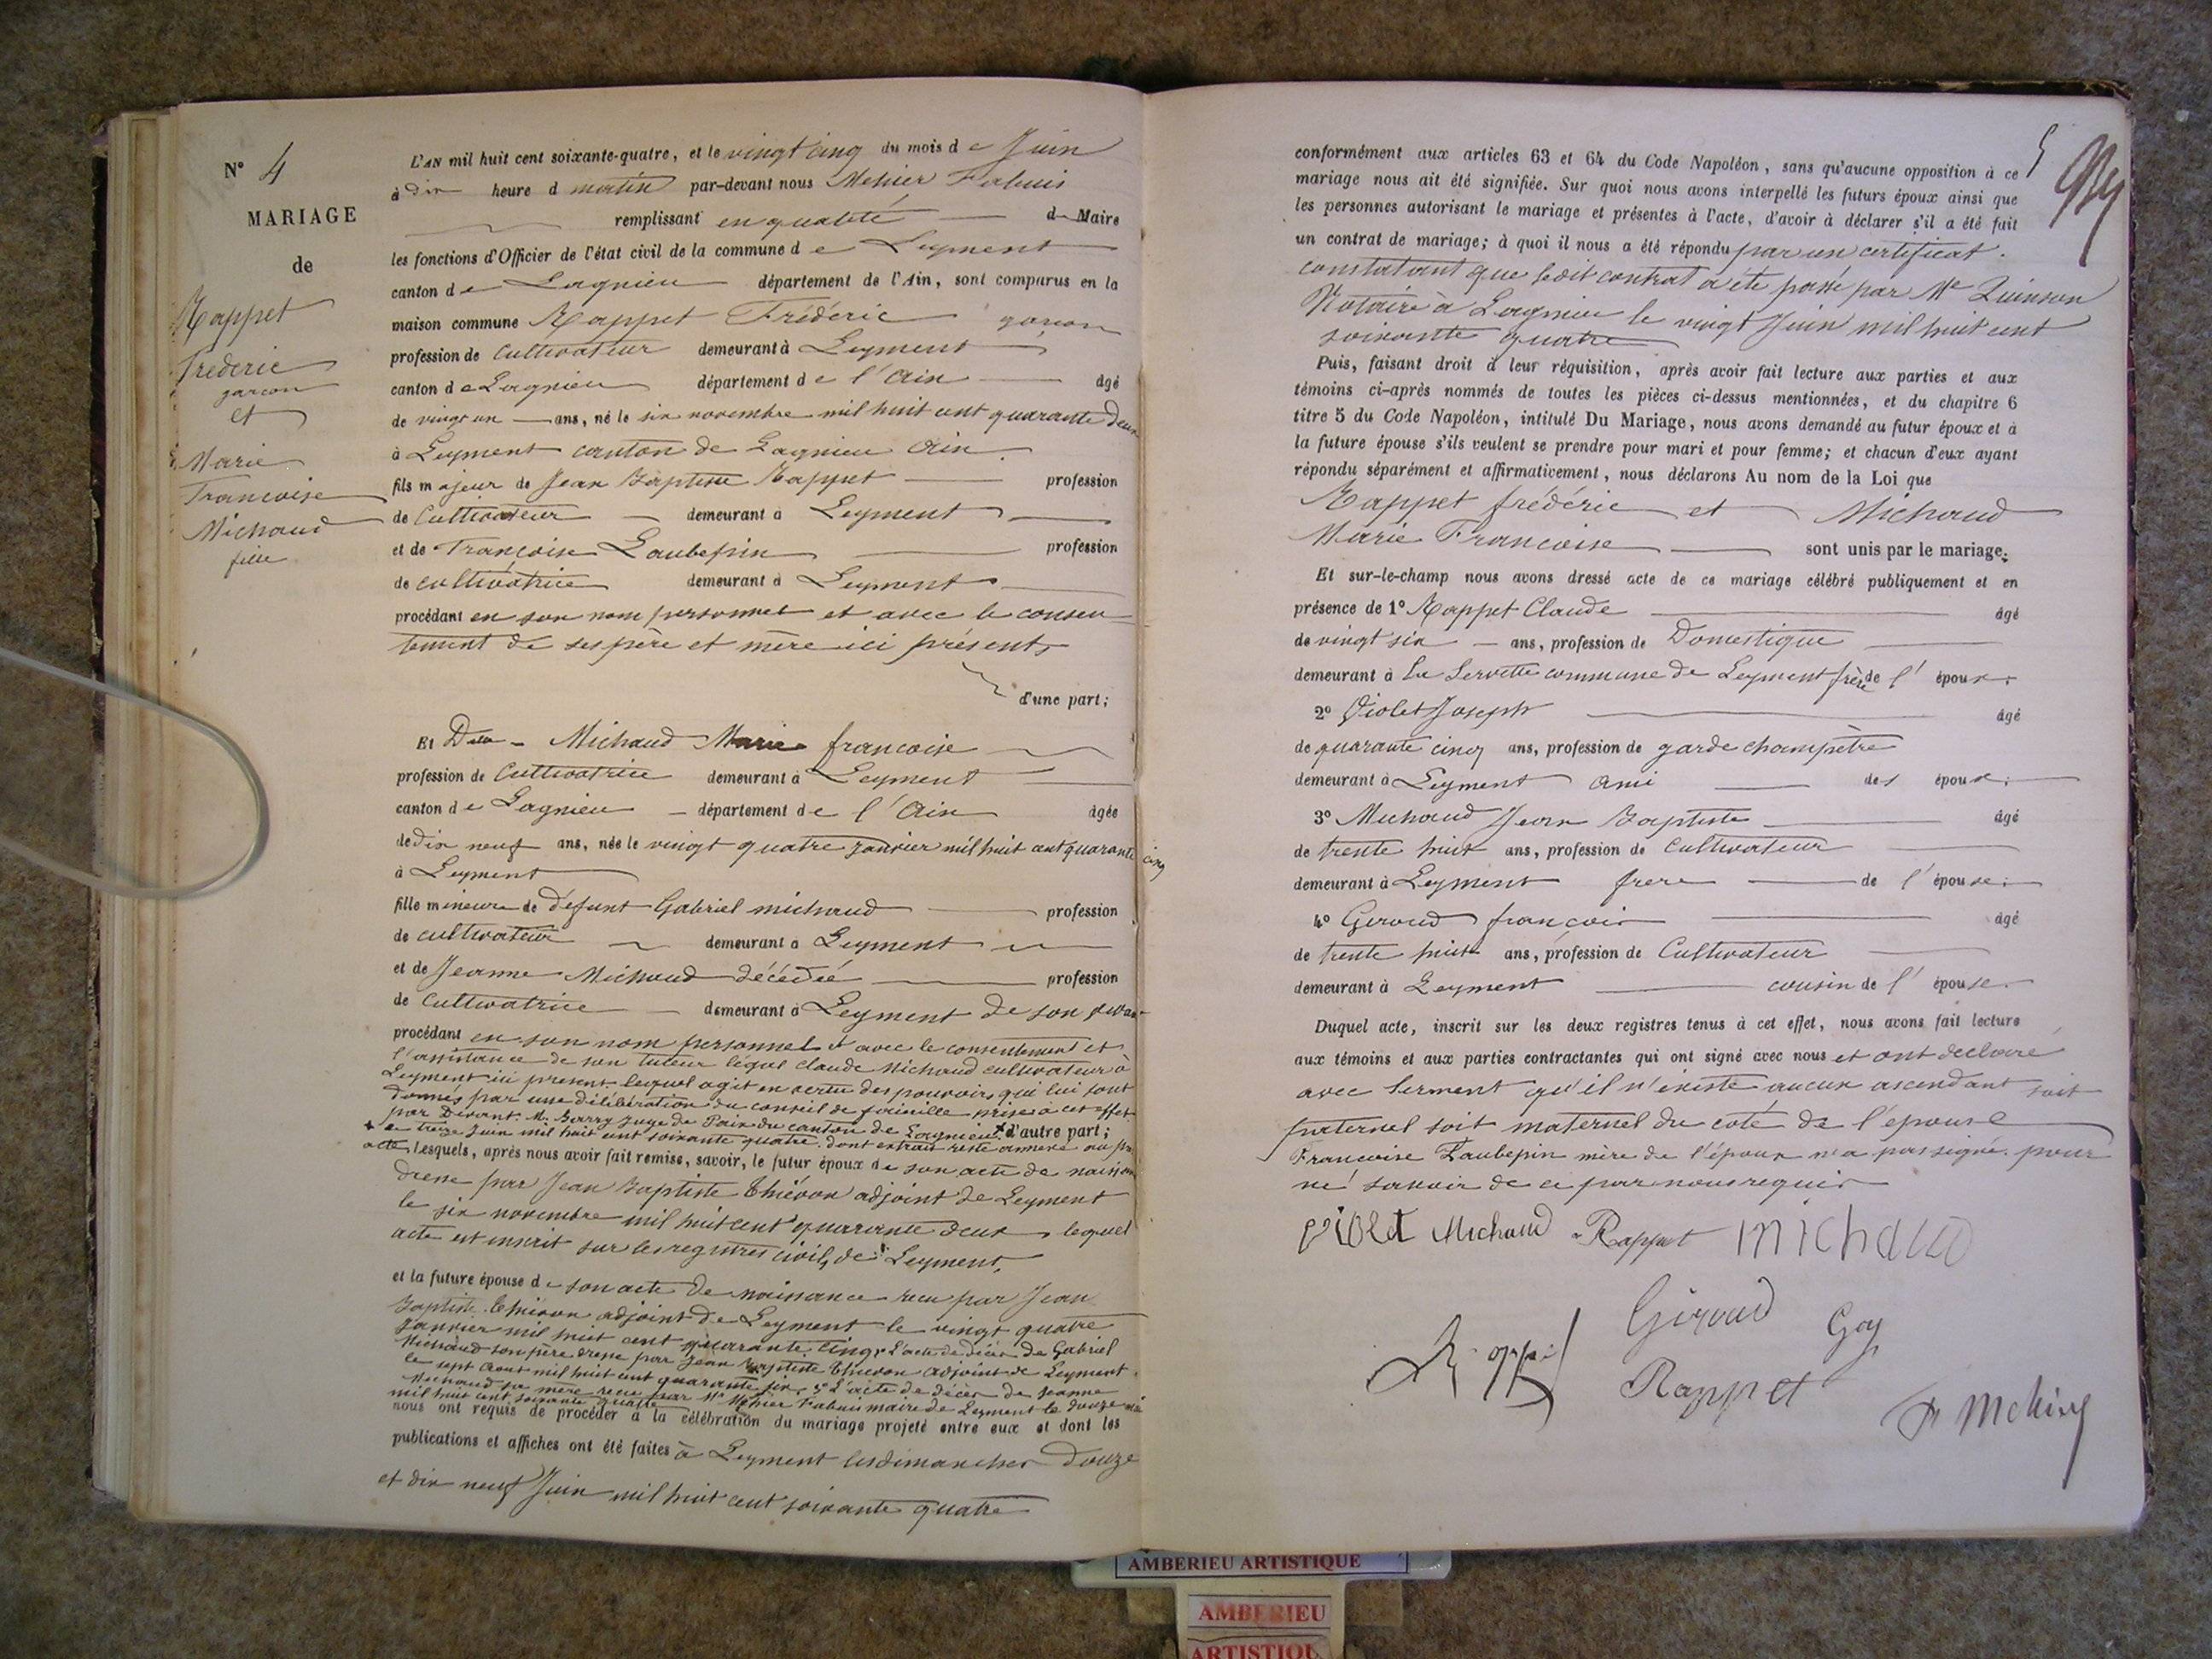 N° 4
MARIAGE
de
Rappet
Frédéric
garcon
et
Marie
Francoise
Michaud
fille
L'AN mil huit cent soixante-quatre, et le vingt cinq du mois de Juin
à dix heure d matin par-devant nous Mehier Fabuis
remplissant en qualité de Maire
les fonctions d'Officier de l'état civil de la commune de Leyment
canton de Lagnieu département de l'Ain, sont comparus en la
maison commune Rappet Frédéric garcon
profession de Cultivateur demeurant à Leyment
canton de Lagnieu département de l'Ain âgé
de vingt un ans, né le six novembre mil huit cent quarante deux
à Leyment canton de Lagnieu Ain.
fils majeur de Jean Baptiste Rappet profession
de Cultivateur demeurant à Leyment
et de Françoise Laubepin profession
de cultivatrice demeurant à Leyment
procédant en son nom personnel et avec le consen
tement de ses père et mère ici présents
d'une part;
Et Dlle Michaud Marie francoise
profession de Cultivatrice demeurant à Leyment
canton de Lagnieu département de l'Ain âgée
de dix neuf ans, née le vingt quatre janvier mil huit cent quarante cinq
à Leyment
fille mineure de défunt Gabriel michaud profession
de cultivateur demeurant à Leyment
et de Jeanne Michaud décédée profession
de Cultivatrice demeurant à Leyment de son
procédant en son nom personnel et avec le consentement et
l'assistance de son tuteur légal Claude Michaud cultivateur à
Leyment ici present lequel agit en vertu des pouvoirs qui lui sont
donnés par une délibération du conseil de famille prise à cet effet
par Devant M. Barry Juge de Paix du canton de Lagnieu + d'autre part;
+ le treize Juin mil huit cent soixante quatre dont extrait reste annexé au
acte Lesquels, après nous avoir fait remise, savoir, le futur époux de son acte de naissan
dressé par Jean Baptiste Thiévon adjoint de Leyment
le six novembre mil huit cent quarante deux, lequel
acte est inscrit sur les registres civils de Leyment,
et la future épouse de son acte de naissance recu par Jean
Baptiste thievon adjoint de Leyment le vingt quatre
Janvier mil huit cent quarante cinq, L'acte de décès de Gabriel
Michaud son père dressé par Jean Baptiste Thievon adjoint de Leyment
le sept Aout mil huit cent quarante six, L'acte de décès de Jeanne
Michaud sa mère recu par Mr Mehier Fabuis maire de Leyment le douze
mil huit cent soixante quatre
nous ont requis de procéder à la célébration du mariage projeté entre eux et dont les
publications et affiches ont été faites à Leyment les dimanches Douze
et dix neuf Juin mil huit cent soixante quatre
conformément aux articles 63 et 64 du Code Napoléon, sans qu'aucune opposition à ce
mariage nous ait été signifiée. Sur quoi nous avons interpellé les futurs époux ainsi que
les personnes autorisant le mariage et présentes à l'acte, d'avoir à déclarer s'il a été fait
un contrat de mariage; à quoi il nous a été répondu par un certificat.
constatant que ledit contrat a été passé par Me Quinson
Notaire à Lagnieu le vingt Juin mil huit cent
soixante quatre
Puis, faisant droit à leur réquisition, après avoir fait lecture aux parties et aux
témoins ci-après nommés de toutes les pièces ci-dessus mentionnées, et du chapitre 6
titre 5 du Code Napoléon, intitulé Du Mariage, nous avons demandé au futur époux et à
la future épouse s'ils veulent se prendre pour mari et pour femme; et chacun d'eux ayant
répondu séparément et affirmativement, nous déclarons Au nom de la Loi que
Rappet frédéric et Michaud
Marie Francoise sont unis par le mariage.
Et sur-le-champ nous avons dressé acte de ce mariage célébré publiquement et en
présence de 1° Rappet Claude âgé
de vingt six ans, profession de Domestique
demeurant à La Servette commune de Leyment frère de l'époux.
2° Violet Joseph âgé
de quarante cinq ans, profession de garde champètre
demeurant à Leyment ami des époux.
3° Michaud Jean Baptiste âgé
de trente huit ans, profession de Cultivateur
demeurant à Leyment frere de l'épouse.
4° Geroud françois âgé
de trente huit ans, profession de Cultivateur
demeurant à Leyment cousin de l'épouse.
Duquel acte, inscrit sur les deux registres tenus à cet effet, nous avons fait lecture
aux témoins et aux parties contractantes qui ont signé avec nous et ont declaré
avec serment qu'il n'existe aucun ascendant soit
paternel soit maternel du coté de l'épouse
Francoise Laubepin mère de l'époux n'a pas signé pour
ne savoir de ce par nous requis
violet Michaud Rappet michaud
Giroud Goy
Rappet
F Mehier
AMBERIEU ARTISTIQUE
AMBERIEU
ARTISTIQU